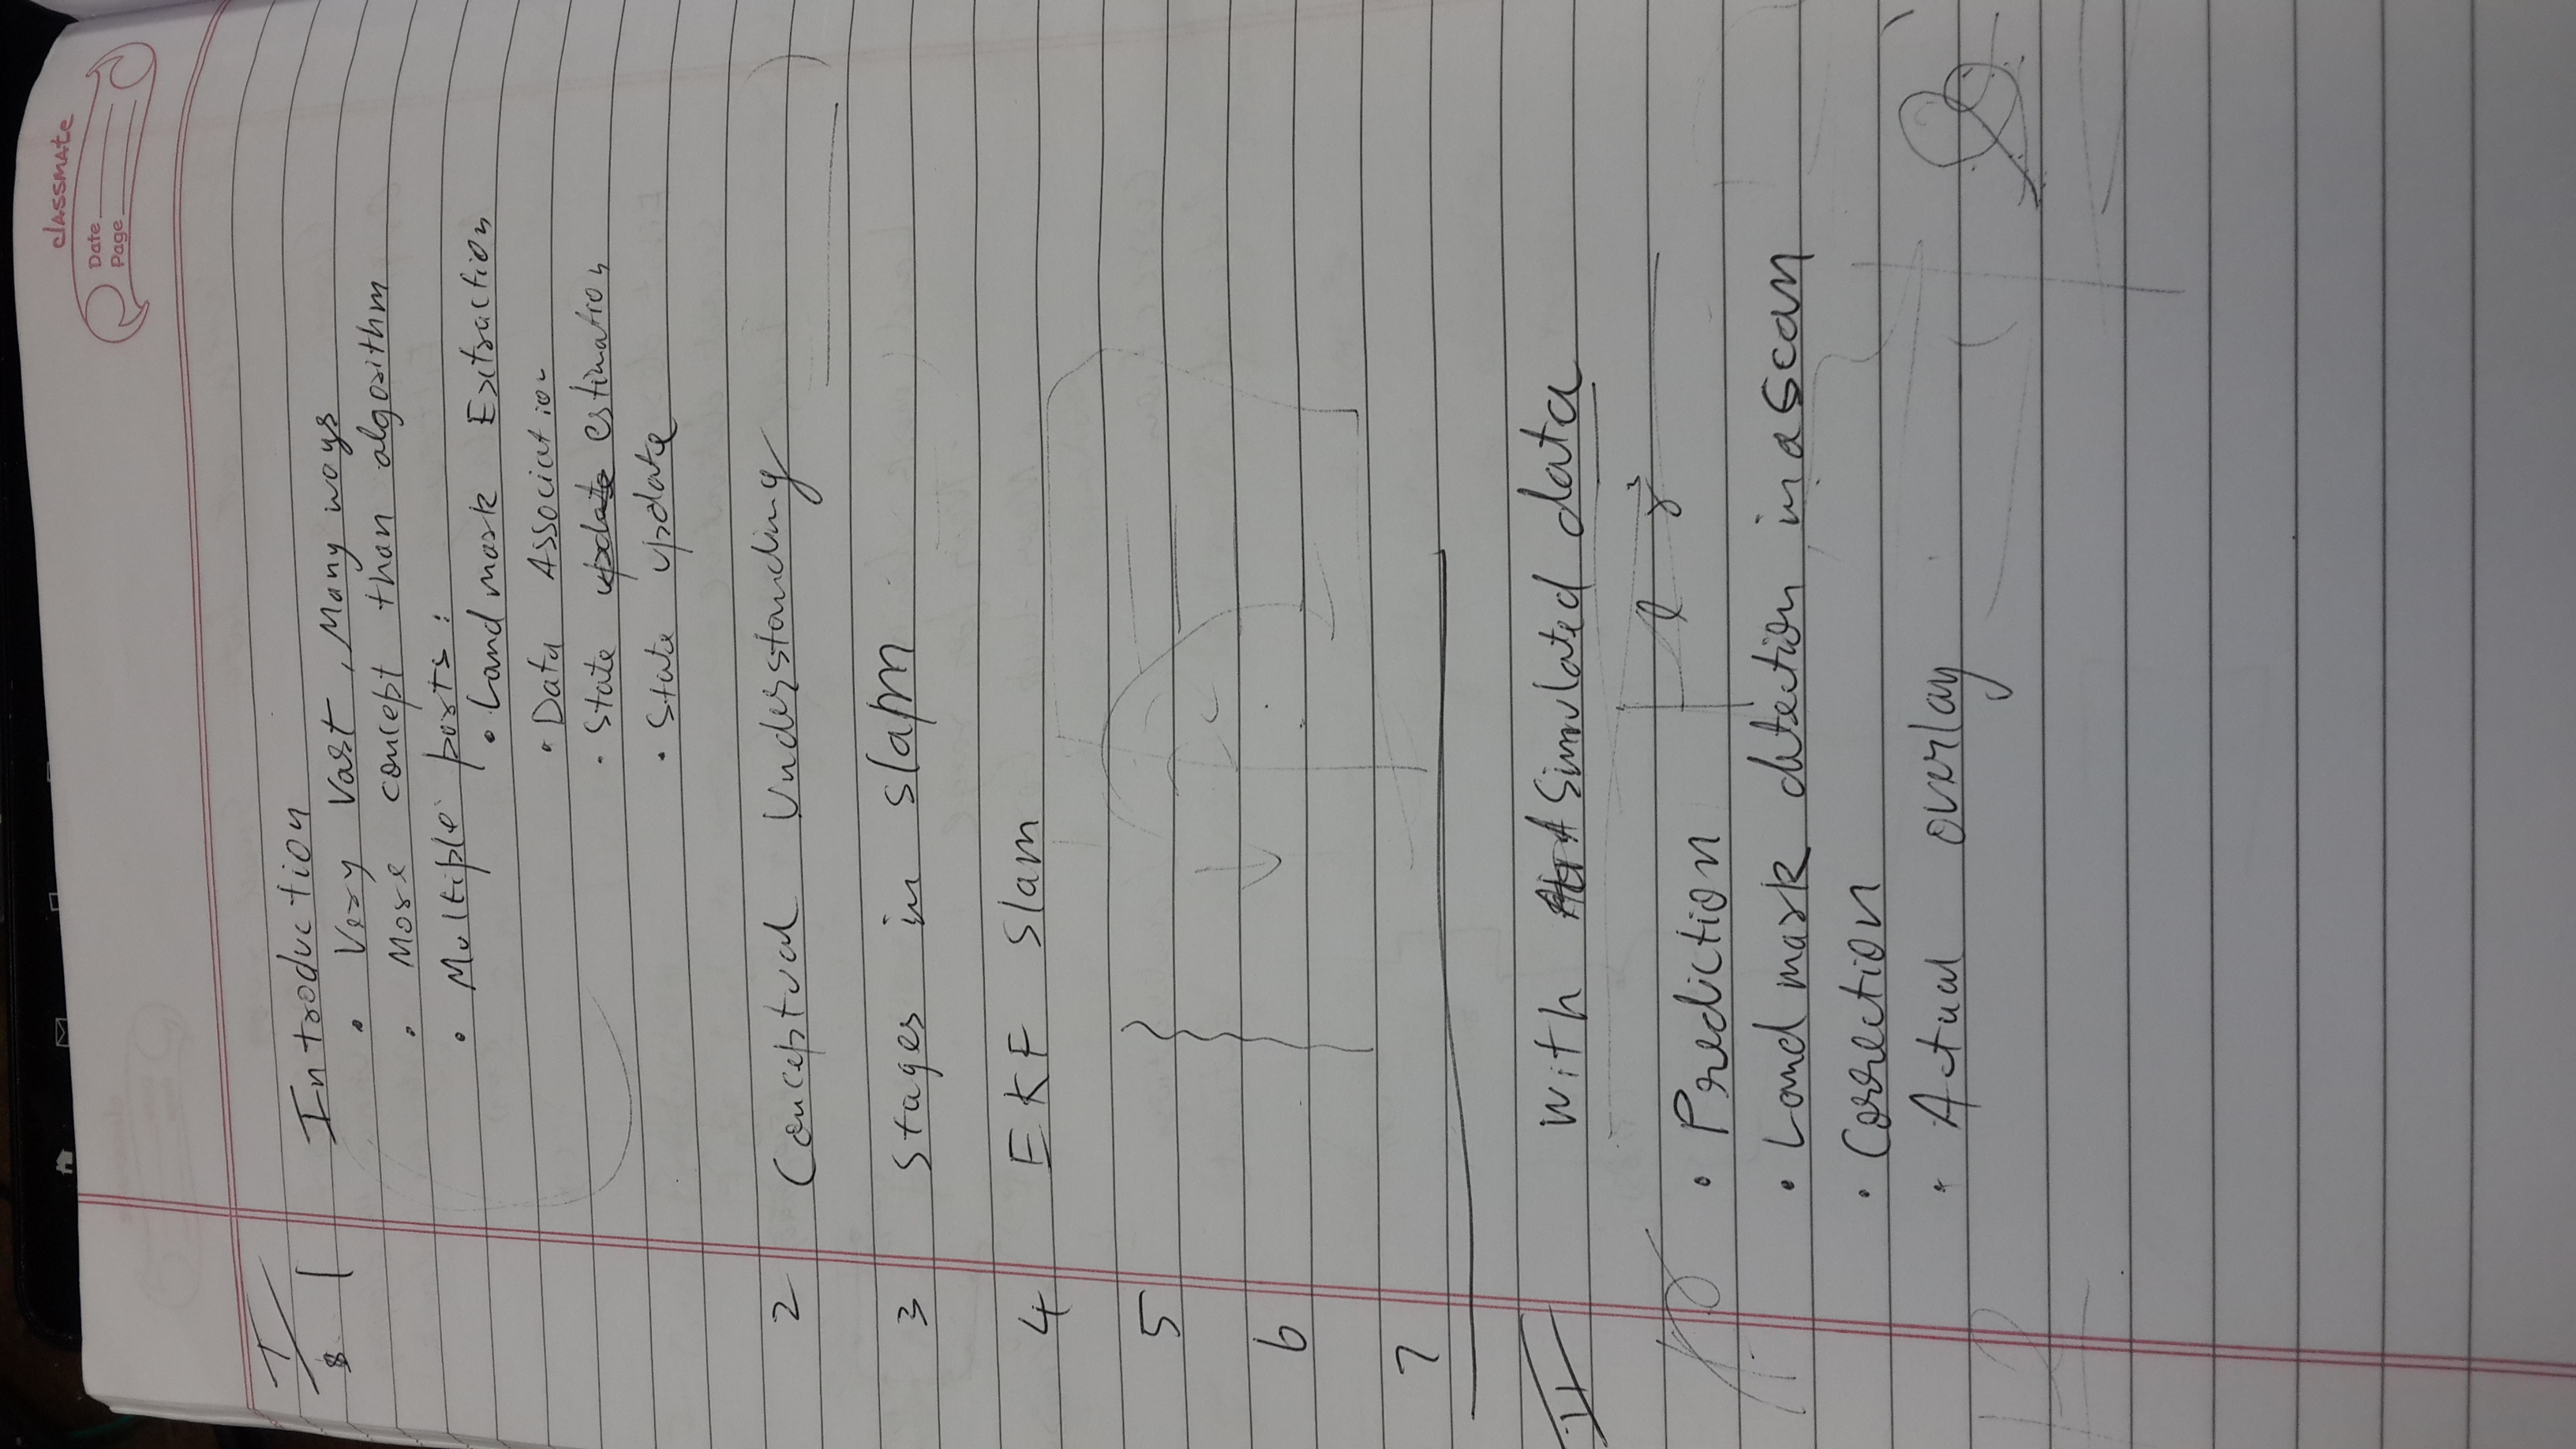 classmate
Date
Page
I
1 Introduction
• Very Vast, Many ways
• More concept than algorithm
• Multiple parts:
• Landmark Extraction
• Data Association
• State update estimation
• State update
2 Conceptual Understanding
3 Stages in slam
4 EKF Slam
5
6
7
II With Simulated data
• Prediction
• Land mark detection in a scan
• Correction
• Actual overlay